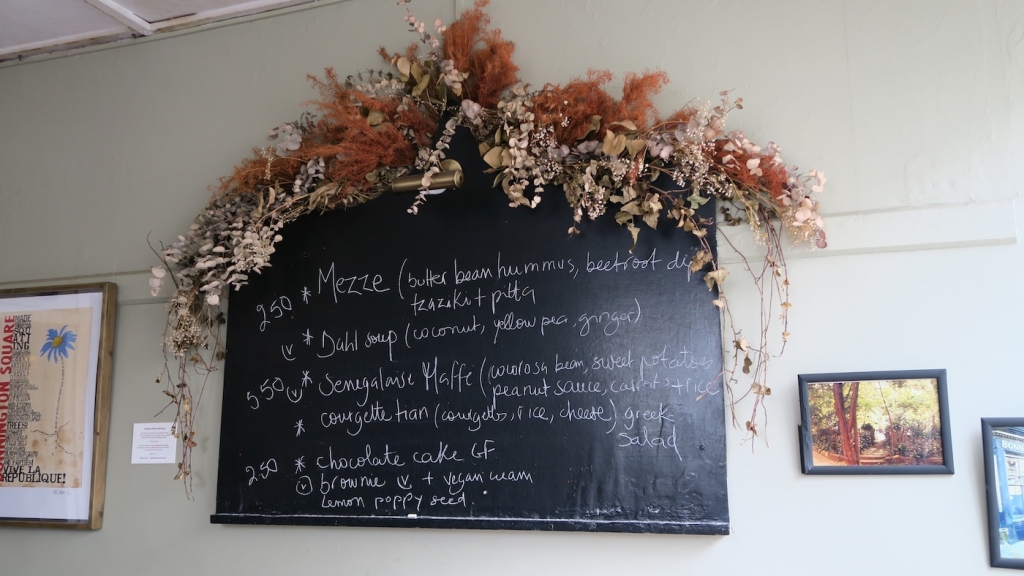 250 * Mezze (butter bean hummus, beetroot dip
tzazaki + pitta
v * Dahl soup (coconut, yellow pea, ginger)
550 v * Senegalaise Maffe (cocorosa bean, sweet potatoe,
peanut sauce, carrots + rice
* courgette tian (courgets, rice, cheese) greek
salad
250 * chocolate cake GF
v brownie v + vegan cream
Lemon poppy seed.
NNINGTON SQUARE
VIVE LA
REPUBLIQUE!